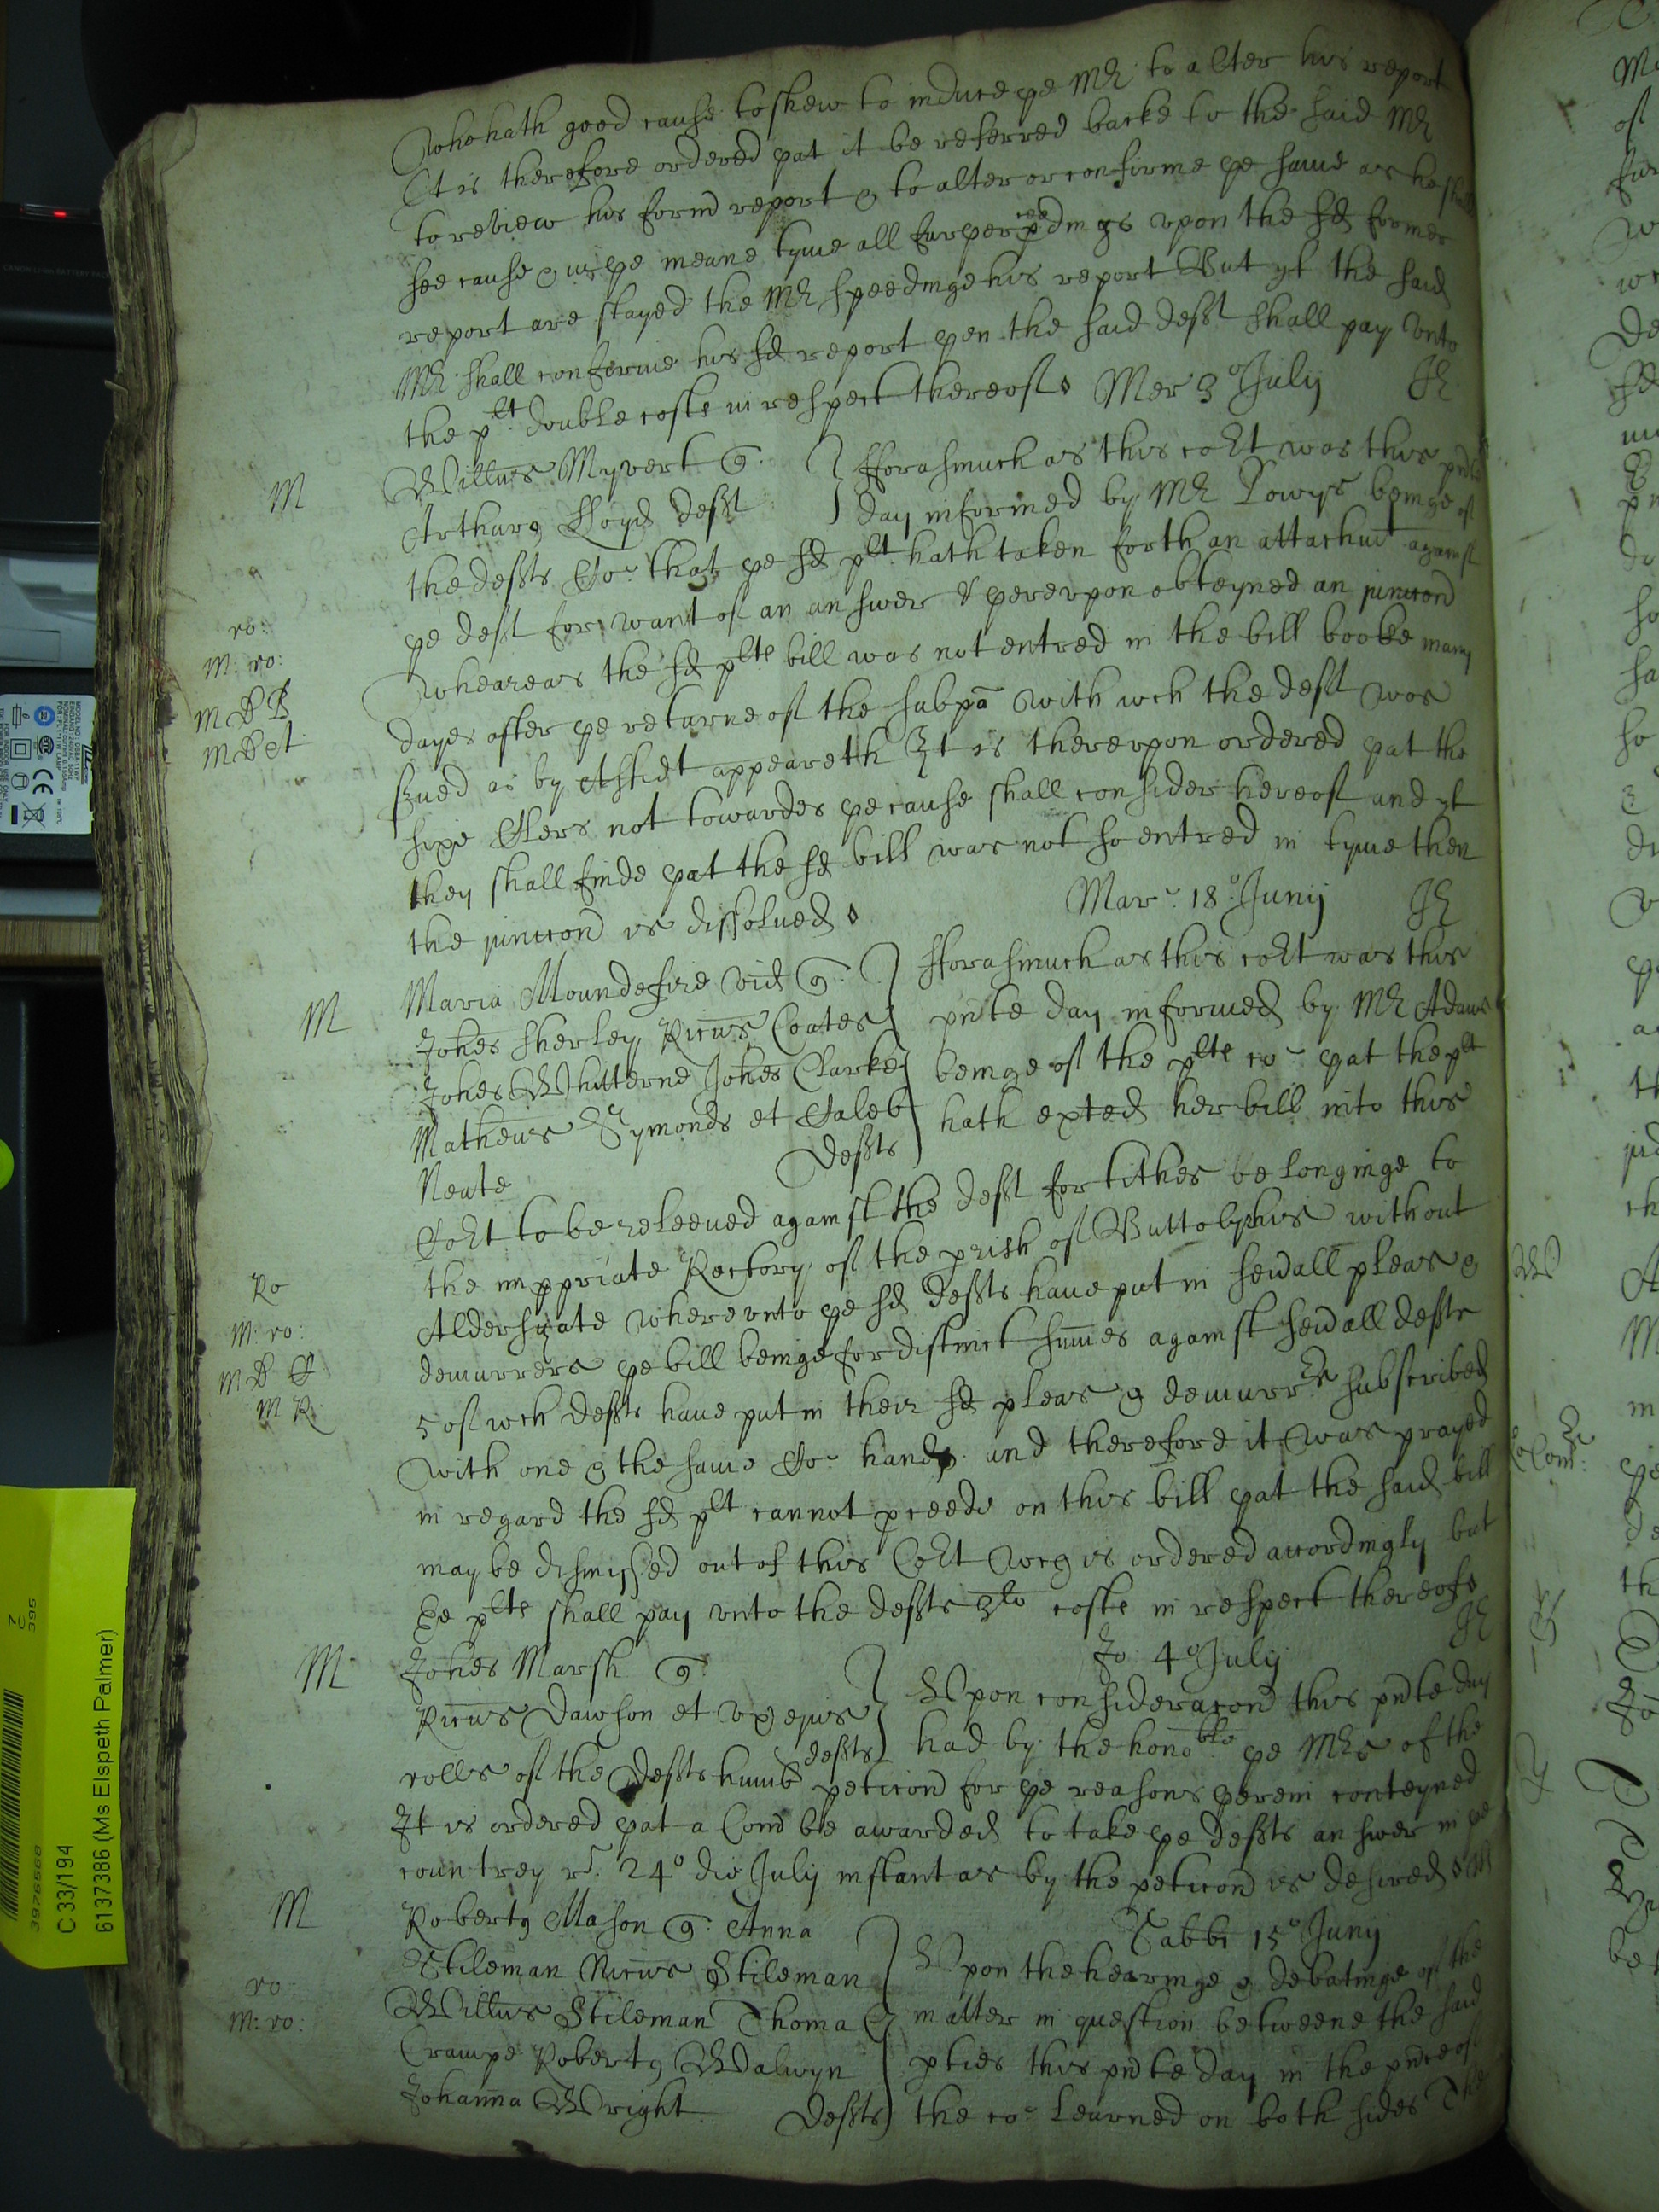 who hath good cause to shew to induce ye Mr to alter his report
It is therefore ordered yat it be referred backe to the said Mr
to review his form report & to alter or conforme ye same as he shall
see cause & in ye meane tyme all furyer pceedings upon the sd former
report are stayed the Mr speedinge his report But yf the said
Mr shall conferme his sd report yen the said deft shall pay unto
the plt double costs in respect thereof Mer 3o July
M
Willms Myvert q.
fforasmuch as this cort was this pnte
Arthurq Lloyd deft
day informed by Mr Powys beinge of
the defts Co: that ye sd plt hath taken forth an attachmt against
ye deft for want of an answer & yereupon obteyned an iunccon
ro:
M: ro:
wheareas the sd plts bill was not entred in the bill booke many
M B B
dayes after ye returne of the subpa with wch the deft was
M B A
sued as by Affidt appeareth It is thereupon ordered yat the
sixe Clers not towardes ye cause shall consider hereof and yf
they shall finde yat the sd bill was not so entred in tyme then
the iunccon is dissolved
Mar: 18o Junij
M
Maria Moundefire vid q.
fforasmuch as this cort was this
Johes Sherley Ricus Coates
pnte day informed by Mr Adams
Johes Whitterne Johes Clarke
beinge of the plts co: yat the plt
Matheus Symonds et Caleb
hath exted her bill into this
Neate
Defts
Cort to be releeved against the deft for tithes belonginge to
the imppriate Rectory of the prish of Buttolphis without
Ro
Aldersgate whereunto ye sd defts have put in sevall pleas &
M: ro:
demurrers ye bill beinge for distinct sumes against sevall defts
M R
5 of wch defts have put in their sd pleas & demurrs subscribed
with one & the same Co: hand and therefore it was prayed
in regard the sd plt cannot pceede on this bill yat the said bill
may be dismissed out of this Cort wch is ordered accordingly but
ye plts shall pay unto the defts costs in respect thereof
M
Johes Marsh q.
Jo: 4o July
Ricus Dawson et ux ejus
defts
Upon consideracon this pnte day
had by the honoble ye Mrs of the
rolls of the Defts humb peticon for ye reasons yerein conteyned
It is ordered yat a Com be awarded to take ye defts answer in ye
countrey r. 24o die July instant as by the peticon is desired
M
Robertq Mason q. Anna
Sabbi 15o Junij
Stileman Ricus Stileman
Upon the hearinge & debatinge of the
ro:
Willms Stileman Thoma
matter in question betweene the said
M: ro:
Crampe Robertq Walwyn
pties this pnte day in the pnce of
Johanna Wright
Defts
the co: learned on both sides The
C 33/194
6137386 (Ms Elspeth Palmer)
3976568